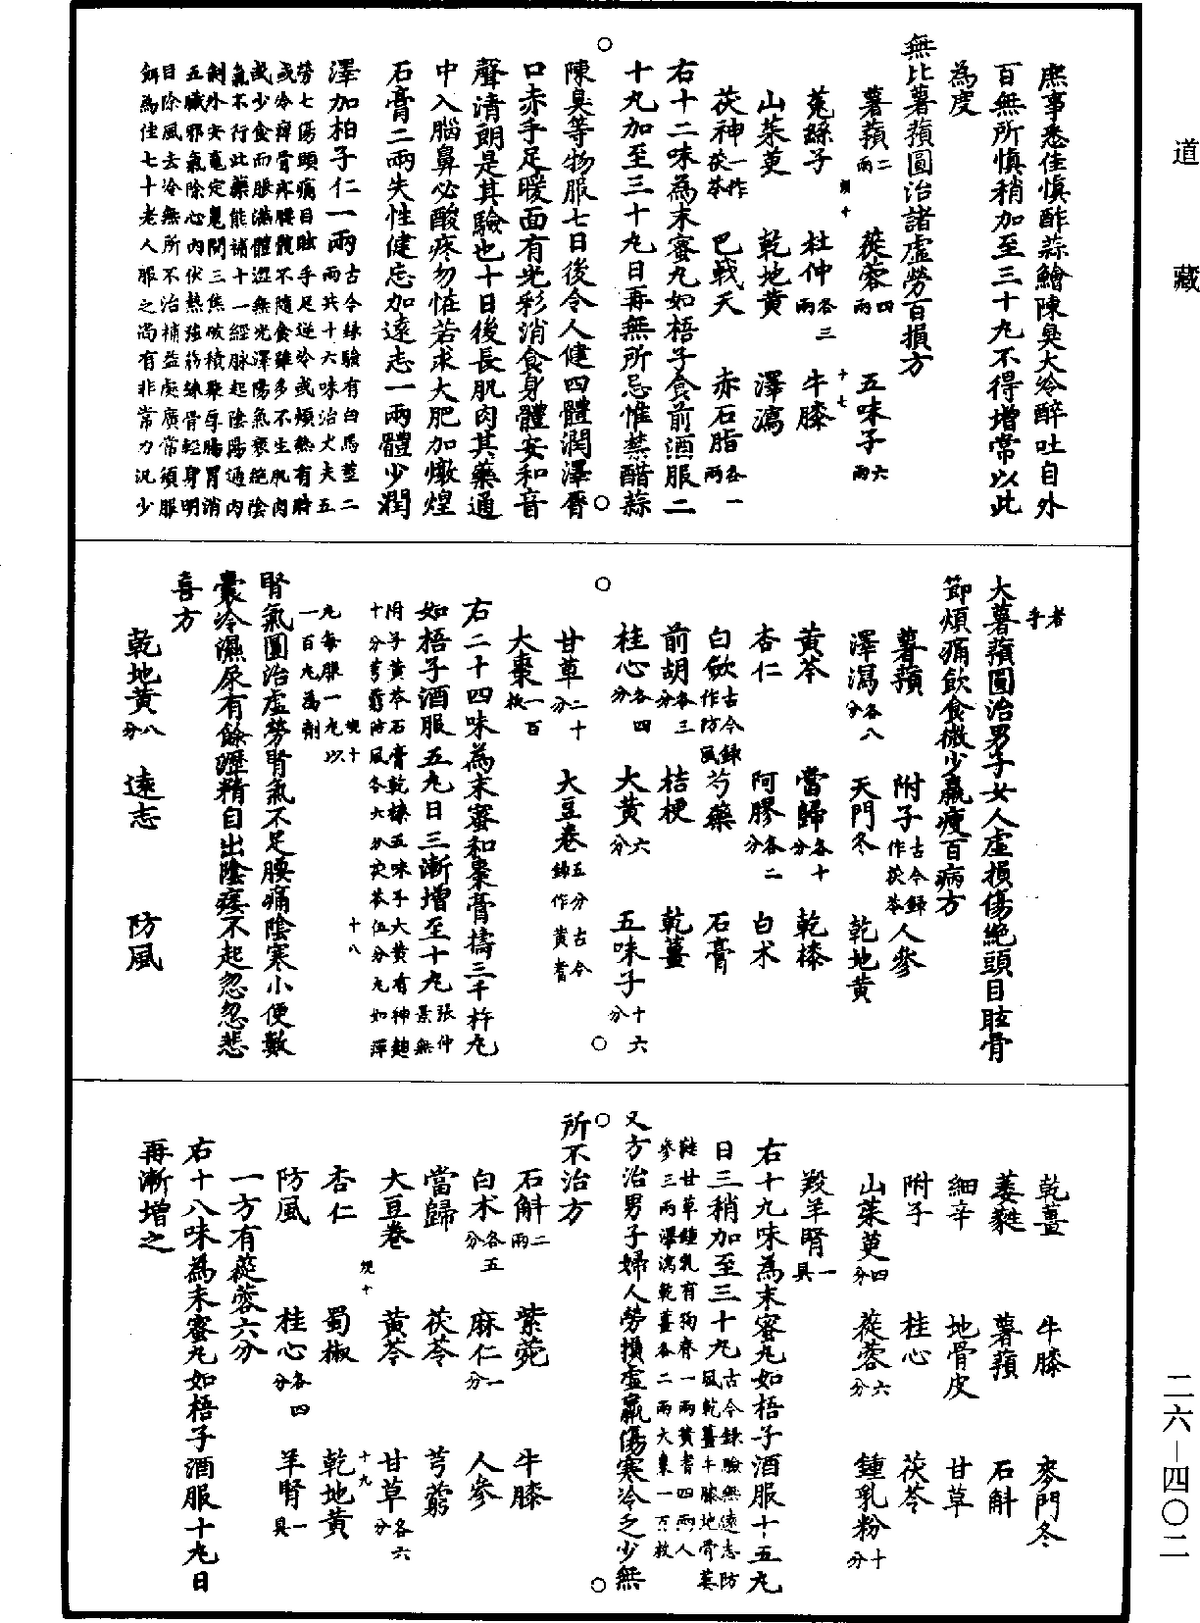 道藏
庶事悉佳慎酢蒜鱠陳臭大冷醉吐自外
百無所慎稍加至三十丸不得增常以此
為度
無比薯蕷圓治諸虛勞百損方
薯蕷二兩 蓯蓉四兩 五味子六兩
菟絲子 杜仲各三兩 牛膝
規十 十七
山茱萸 乾地黃 澤瀉
茯神一作茯苓 巴戟天 赤石脂各一兩
右十二味為末蜜丸如梧子食前酒服二
十丸加至三十丸日再無所忌惟禁醋蒜
陳臭等物服七日後令人健四體潤澤脣
口赤手足暖面有光彩消食身體安和音
聲清朗是其驗也十日後長肌肉其藥通
中入腦鼻必酸疼勿怪若求大肥加燉煌
石膏二兩失性健忘加遠志一兩體少潤
澤加柏子仁一兩古今錄驗有白馬莖二兩共十六味治丈夫五
勞七傷頭痛目眩手足逆冷或煩熱有時
或冷痺骨疼腰髖不隨食雖多不生肌肉
或少食而脹滿體澀無光澤陽氣衰絕陰
氣不行此藥能補十一經脉起陰陽通內
制外安魂定魄開三焦破積聚厚腸胃消
五臟邪氣除心內伏熱強筋練骨輕身明
目除風去冷無所不治補益處廣常須服
餌為佳七十老人服之尚有非常力況少
者乎
大薯蕷圓治男子女人虛損傷絕頭目眩骨
節煩痛飲食微少羸瘦百病方
薯蕷 附子古今錄作茯苓 人參
澤瀉各八分 天門冬 乾地黃
黃芩 當歸各十分 乾漆
杏仁 阿膠各二分 白朮
白斂古今錄作防風 芍藥 石膏
前胡各三分 桔梗 乾薑
桂心各四分 大黃六分 五味子十六分
甘草二十分 大豆卷五分古今錄作黃耆
大棗一百枚
右二十四味為末蜜和棗膏擣三千杵丸
如梧子酒服五丸日三漸增至十丸張仲景無
附子黃芩石膏乾漆五味子大黃有神麴
十分芎藭防風各六分茯苓伍分丸如彈
丸每服一丸以一百丸為劑
規十 十八
腎氣圓治虛勞腎氣不足腰痛陰寒小便數
囊冷濕尿有餘瀝精自出陰痿不起忽忽悲
喜方
乾地黃八分 遠志 防風
乾薑 牛膝 麥門冬
萎蕤 薯蕷 石斛
細辛 地骨皮 甘草
附子 桂心 茯苓
山茱萸四分 蓯蓉六分 鍾乳粉十分
羖羊腎一具
右十九味為末蜜丸如梧子酒服十五丸
日三稍加至三十丸古今錄驗無遠志防風乾薑牛膝地骨萎
蕤甘草鍾乳有狗脊一兩黃耆四兩人
參三兩澤瀉乾薑各二兩大棗一百枚
又方治男子婦人勞損虛羸傷寒冷乏少無
所不治方
石斛二兩 紫菀 牛膝
白朮各五分 麻仁一分 人參
當歸 茯苓 芎藭
大豆卷 黃芩 甘草各六分
規十 十九
杏仁 蜀椒 乾地黃
防風 桂心各四分 羊腎一具
一方有蓯蓉六分
右十八味為末蜜丸如梧子酒服十丸日
再漸增之
二六—四〇二